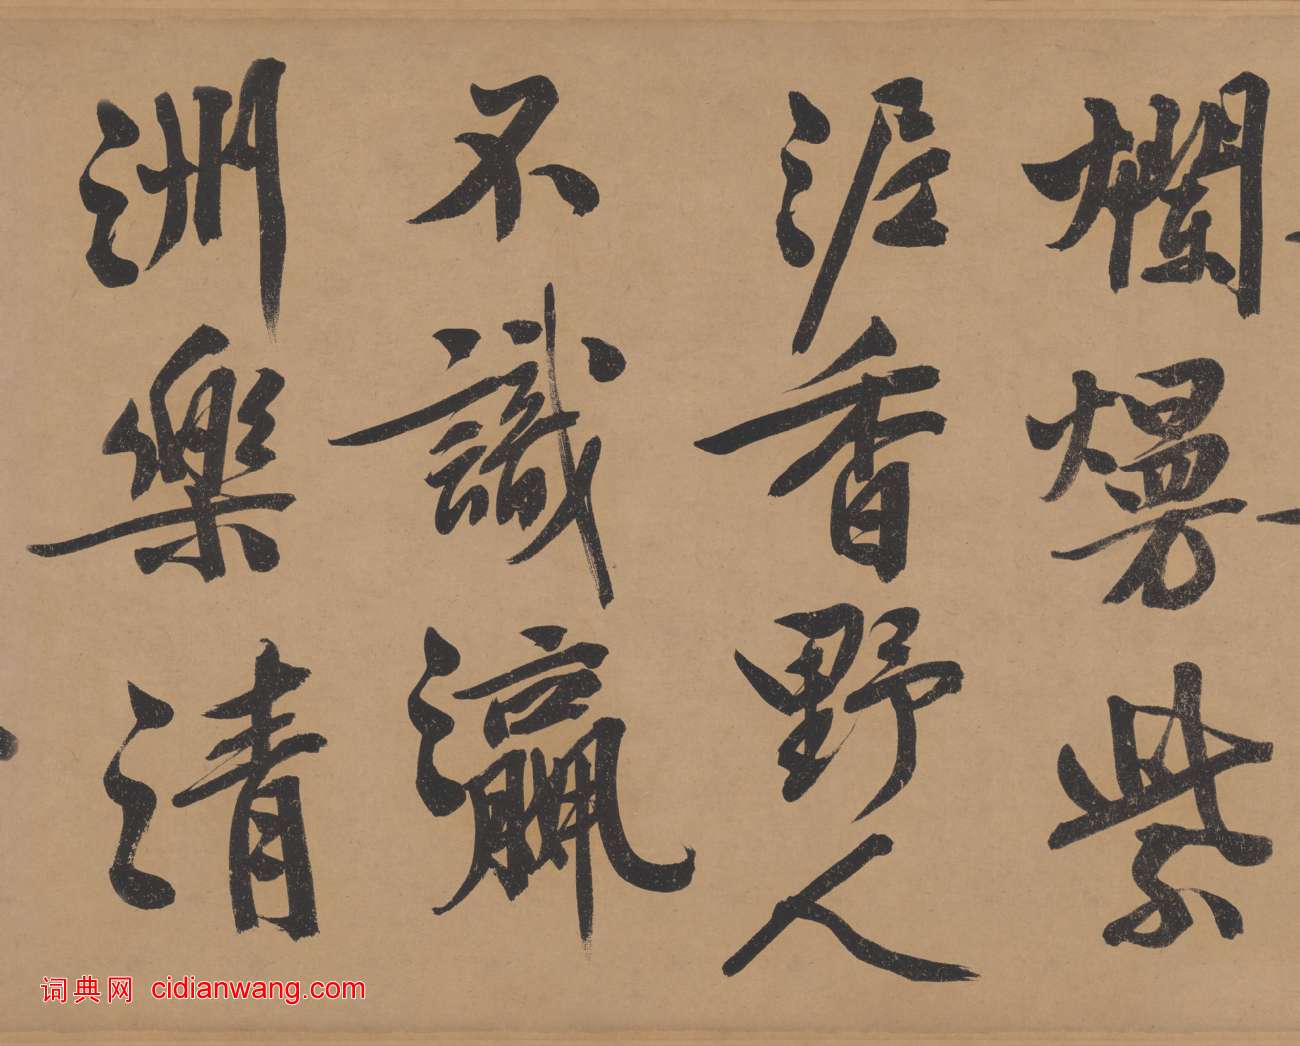 爛熳紫
泥香野人
不識瀛
洲樂清
词典网 cidianwang.com